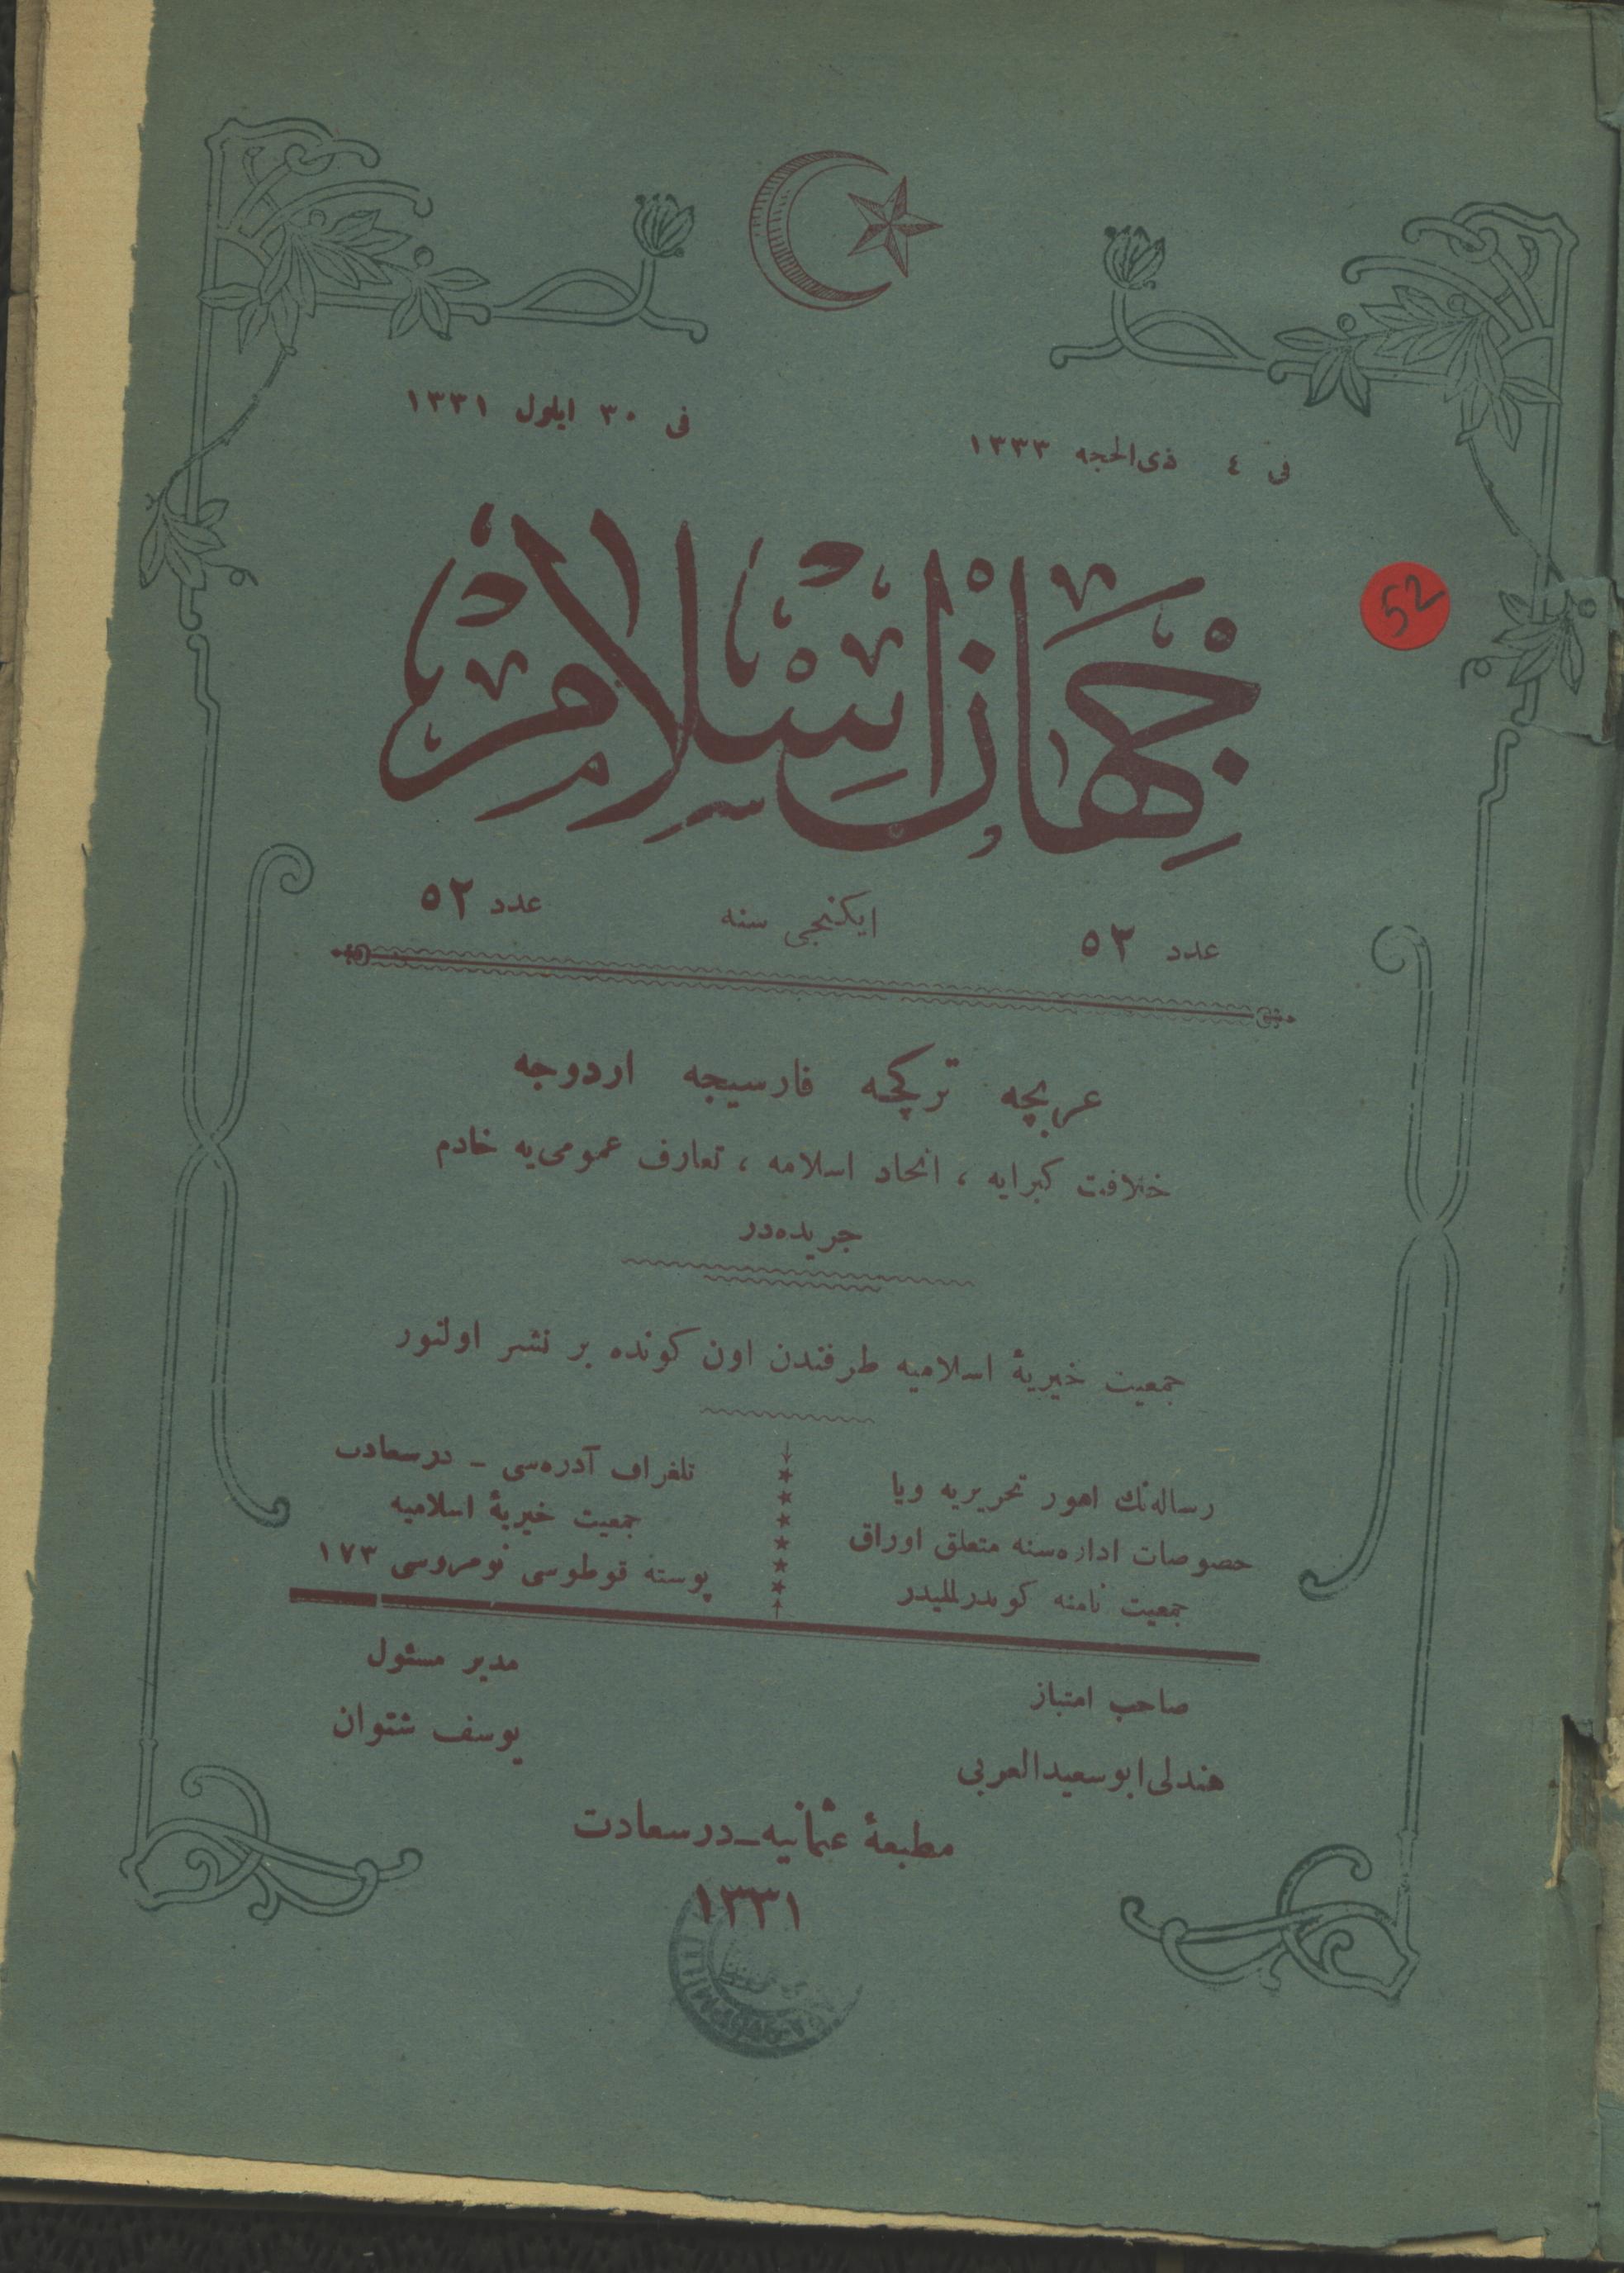 فى ٤ ذى‌الحجه ١٣٣٣
فى ٣٠ ايلول ١٣٣١
جهان اسلام
52
عدد ٥٢
ايكنجى سنه
عدد ٥٢
عربجه تركچه فارسيجه اردوجه
خلافت كبرايه ، اتحاد اسلامه ، تعارف عمومى‌يه خادم
جريده‌در
جمعيت خيريهٔ اسلاميه طرفندن اون كونده بر نشر اولنور
رساله‌نك امور تحريريه ويا
خصوصات اداره‌سنه متعلق اوراق
جمعيت نامنه كوندرلمليدر
تلغراف آدره‌سى ـ درسعادت
جمعيت خيريهٔ اسلاميه
پوسته قوطوسى نومروسى ١٧٣
صاحب امتياز
هندلى ابو سعيد العربى
مدير مسئول
يوسف شتوان
مطبعهٔ عثمانيه ـ درسعادت
١٣٣١